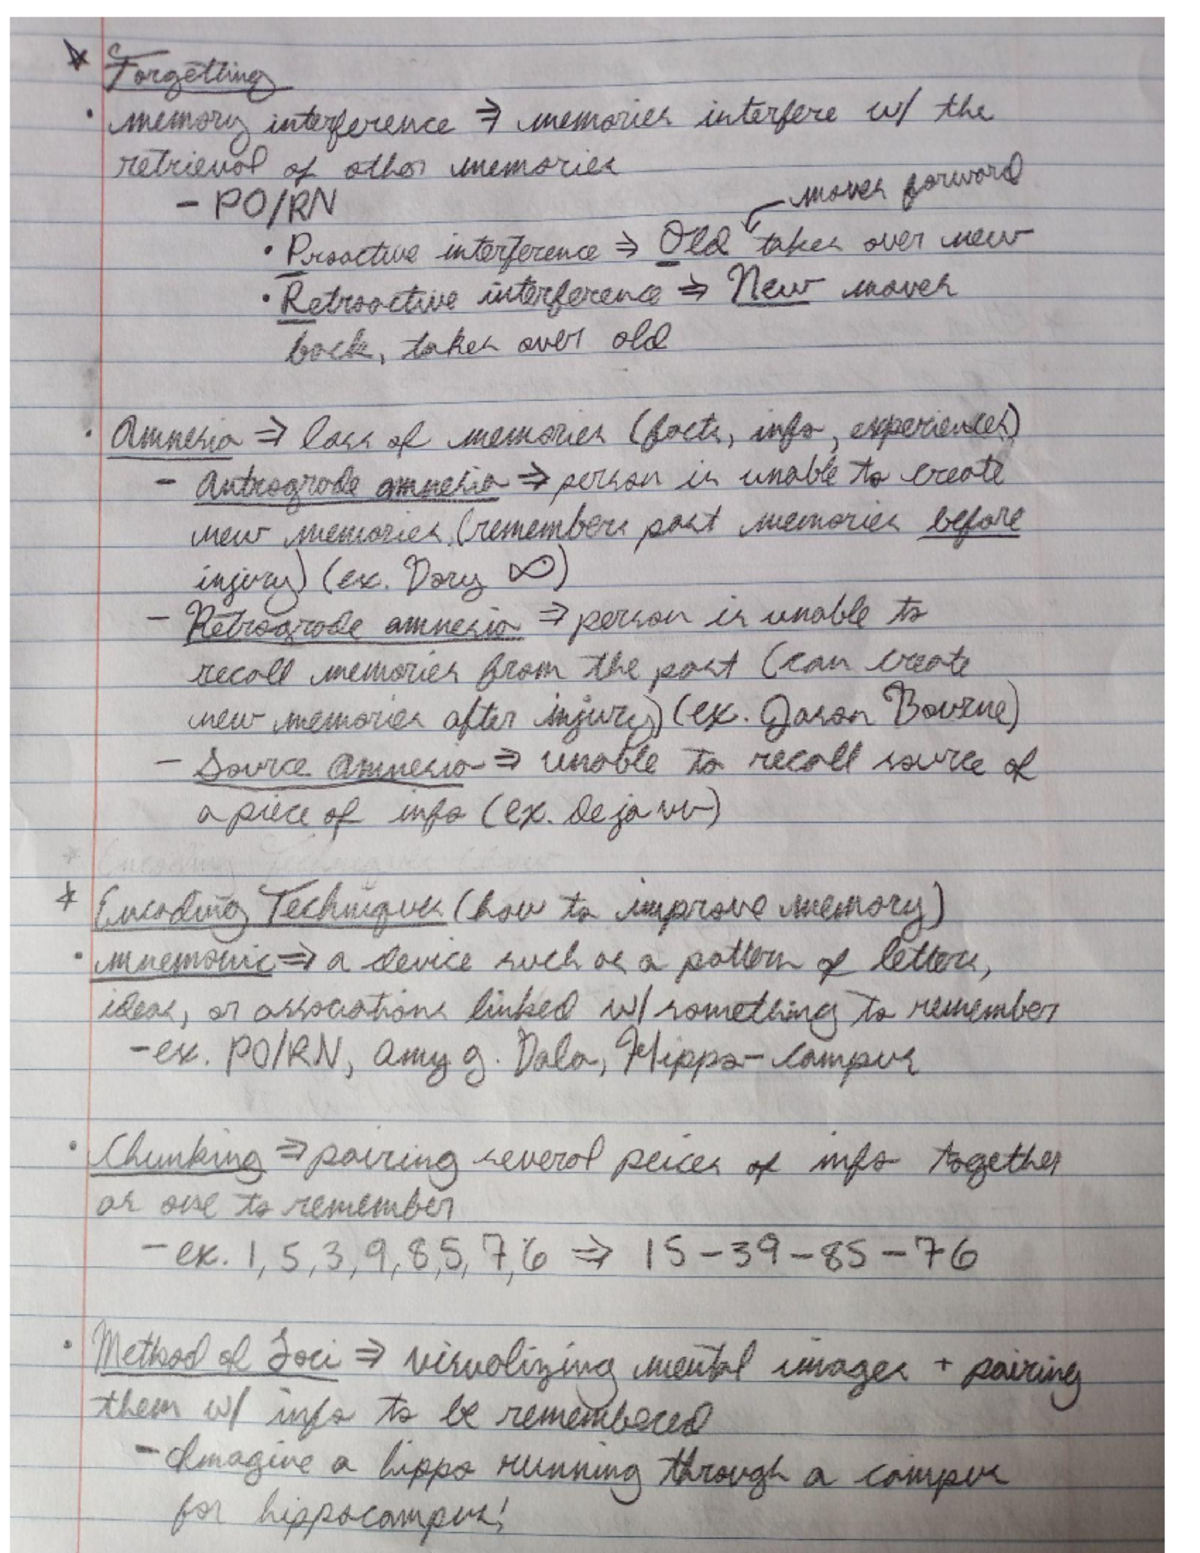 ☆ Forgetting
• memory interference ⇒ memories interfere w/ the
retrieval of other memories
- PO/RN
moves forward
• Proactive interference ⇒ Old takes over new
• Retroactive interference ⇒ New moves
back, takes over old
• Amnesia ⇒ loss of memories (facts, info, experiences)
- Antrograde amnesia ⇒ person is unable to create
new memories (remembers past memories before
injury) (ex. Dory ∝)
- Retrograde amnesia ⇒ person is unable to
recall memories from the past (can create
new memories after injury) (ex. Jason Bourne)
- Source amnesia ⇒ unable to recall source of
a piece of info (ex. deja vu)
☆ Encoding Techniques (how to improve memory)
• mnemonic ⇒ a device such as a pattern of letters,
ideas, or associations linked w/ something to remember
- ex. PO/RN, Amy g. Dala, Hippo-campus
• Chunking ⇒ pairing several peices of info together
as one to remember
- ex. 1, 5, 3, 9, 8, 5, 7, 6 ⇒ 15-39-85-76
• Method of Loci ⇒ visualizing mental images + pairing
them w/ info to be remembered
- Imagine a hippo running through a campus
for hippocampus!